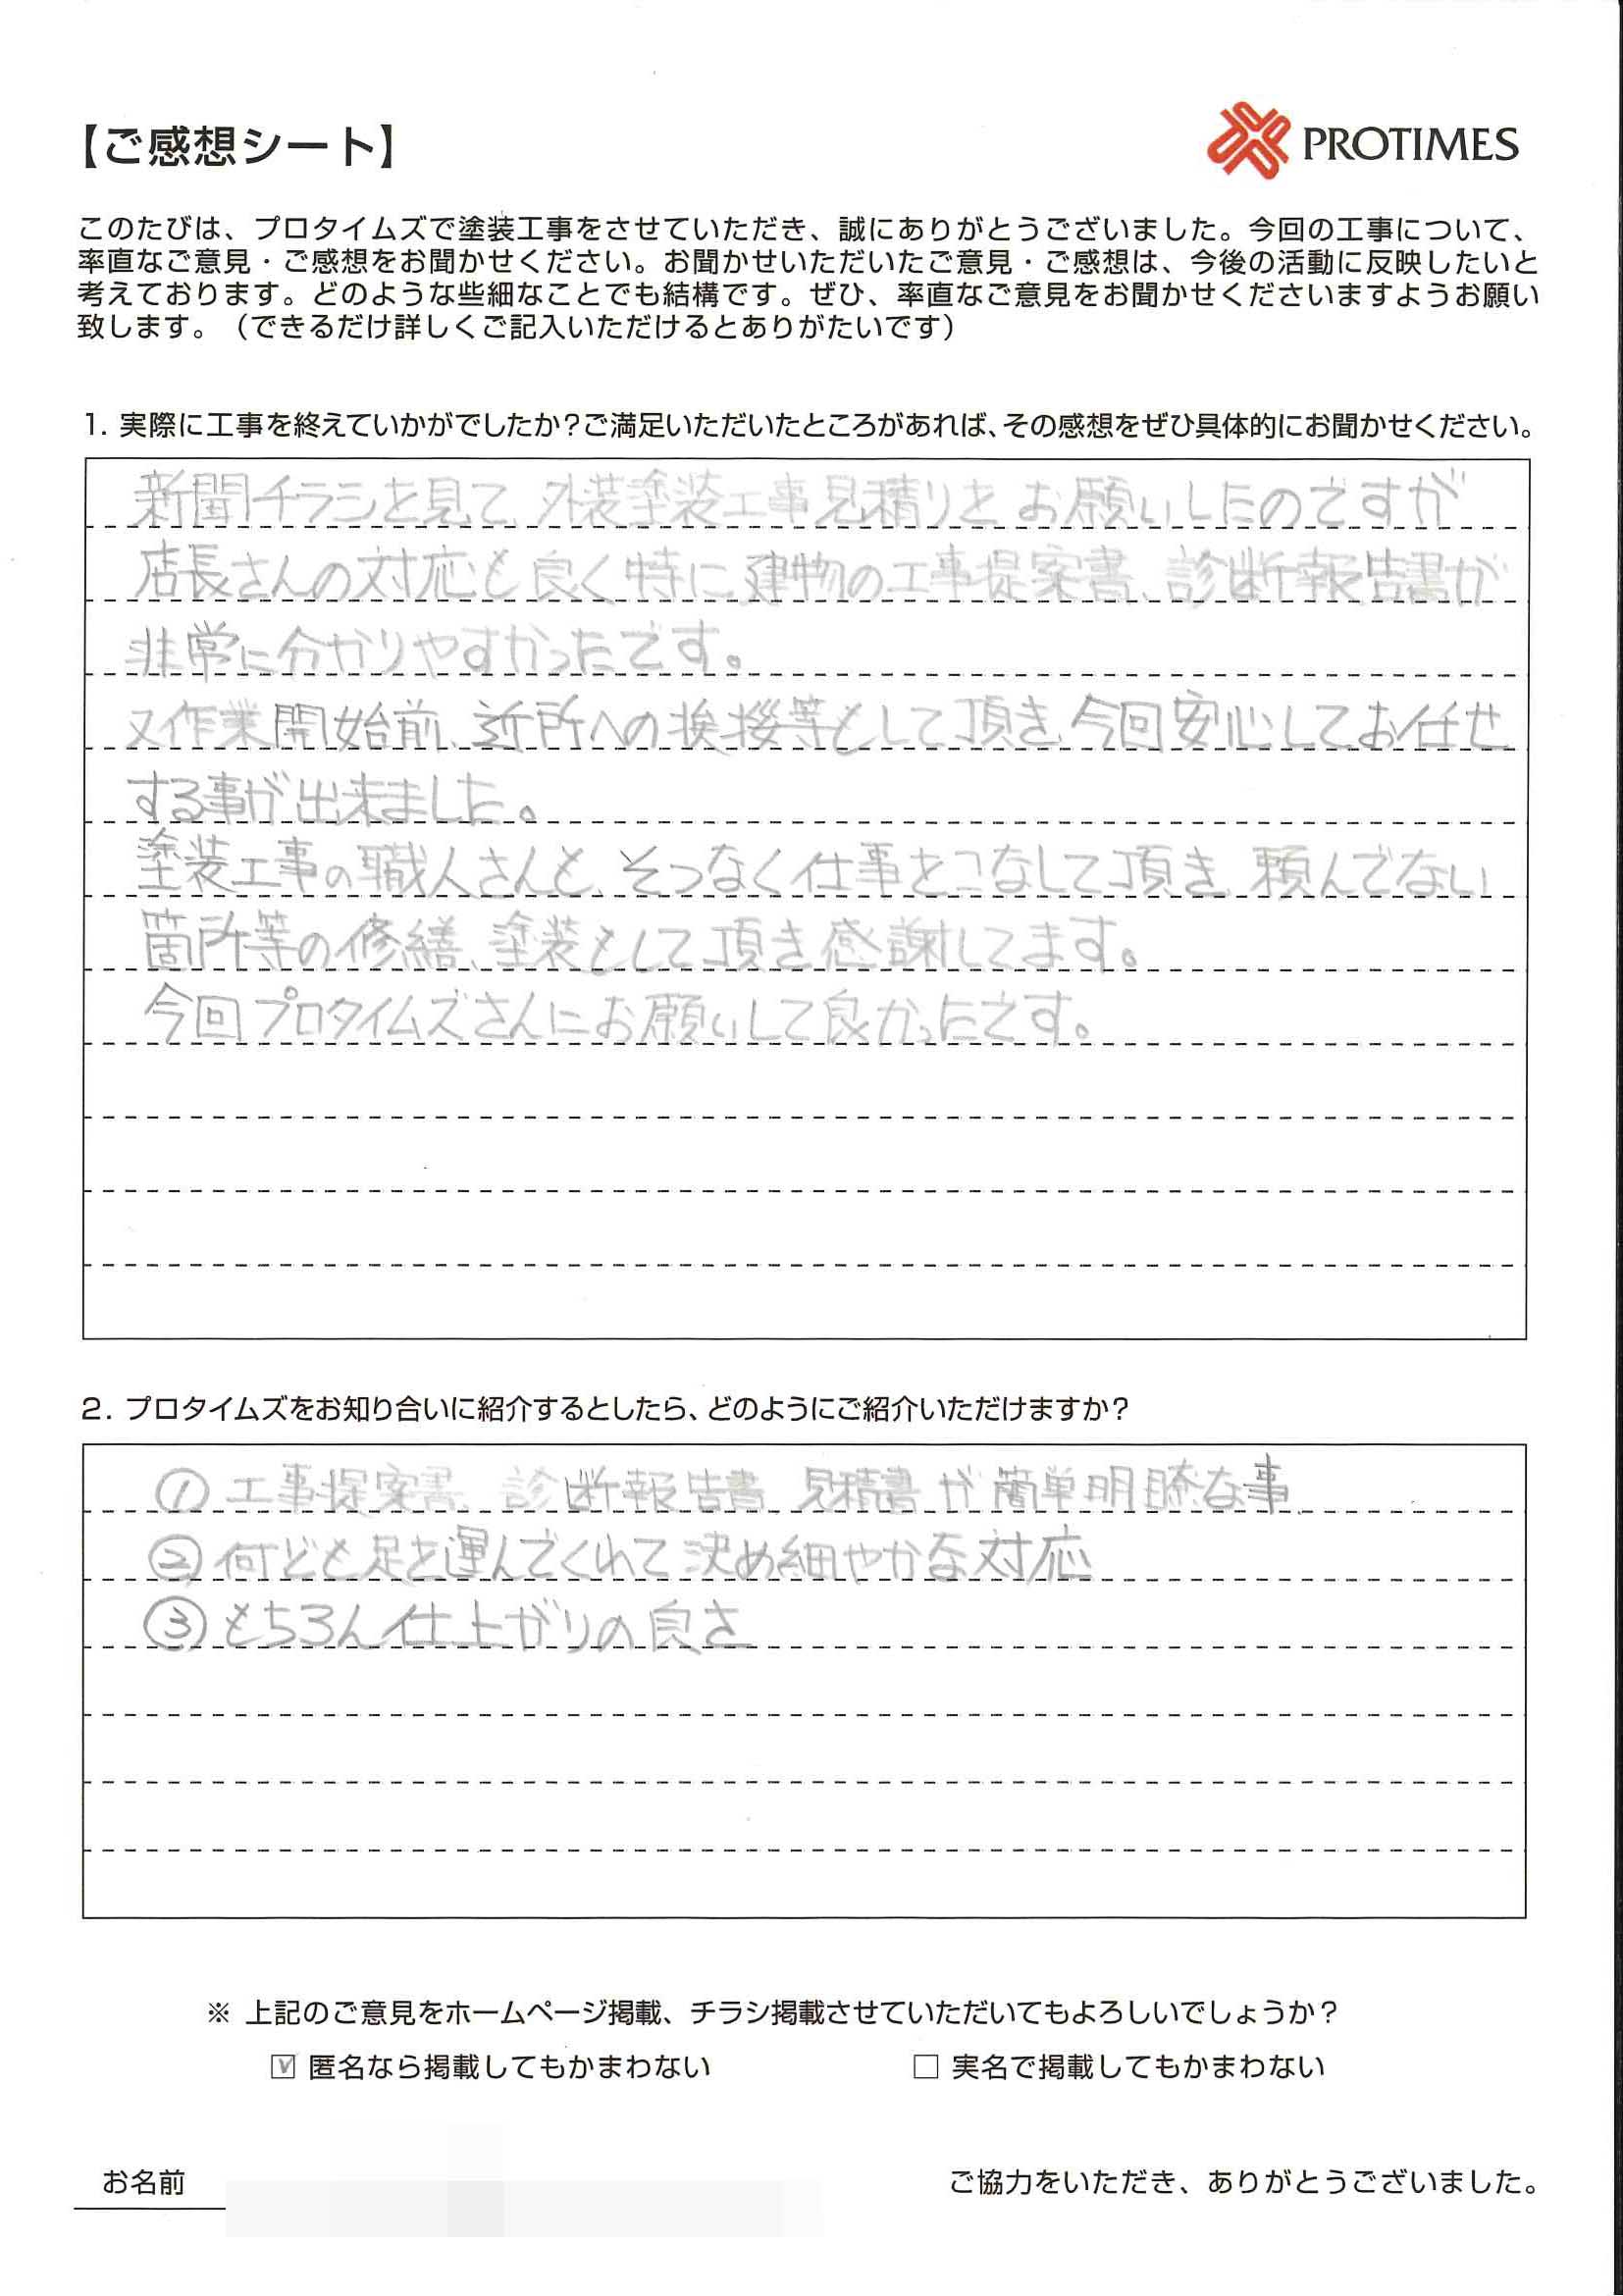 【ご感想シート】
PROTIMES
このたびは、プロタイムズで塗装工事をさせていただき、誠にありがとうございました。今回の工事について、
率直なご意見・ご感想をお聞かせください。お聞かせいただいたご意見・ご感想は、今後の活動に反映したいと
考えております。どのような些細なことでも結構です。ぜひ、率直なご意見をお聞かせくださいますようお願い
致します。（できるだけ詳しくご記入いただけるとありがたいです）
1. 実際に工事を終えていかがでしたか？ご満足いただいたところがあれば、その感想をぜひ具体的にお聞かせください。
新聞チラシを見て、外装塗装工事見積りをお願いしたのですが
店長さんの対応も良く特に建物の工事提案書、診断報告書が
非常に分かりやすかったです。
又作業開始前、近所への挨拶等もして頂き、今回安心してお任せ
する事が出来ました。
塗装工事の職人さんも、そつなく仕事をこなして頂き、頼んでない
箇所等の修繕、塗装もして頂き感謝してます。
今回プロタイムズさんにお願いして良かったです。
2. プロタイムズをお知り合いに紹介するとしたら、どのようにご紹介いただけますか？
① 工事提案書、診断報告書、見積書が簡単明瞭な事
② 何ども足を運んでくれて決め細やかな対応
③ もちろん仕上がりの良さ
※ 上記のご意見をホームページ掲載、チラシ掲載させていただいてもよろしいでしょうか？
☑ 匿名なら掲載してもかまわない □ 実名で掲載してもかまわない
お名前 ご協力をいただき、ありがとうございました。